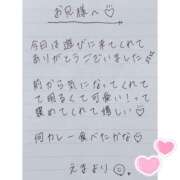 お兄様へ♡
今日は遊びに来てくれて
ありがとうございました
前から気になってくれてて
て明るくて可愛い！って
褒めてくれて嬉しい♡
何カレー食べたかな♡
えまより☺